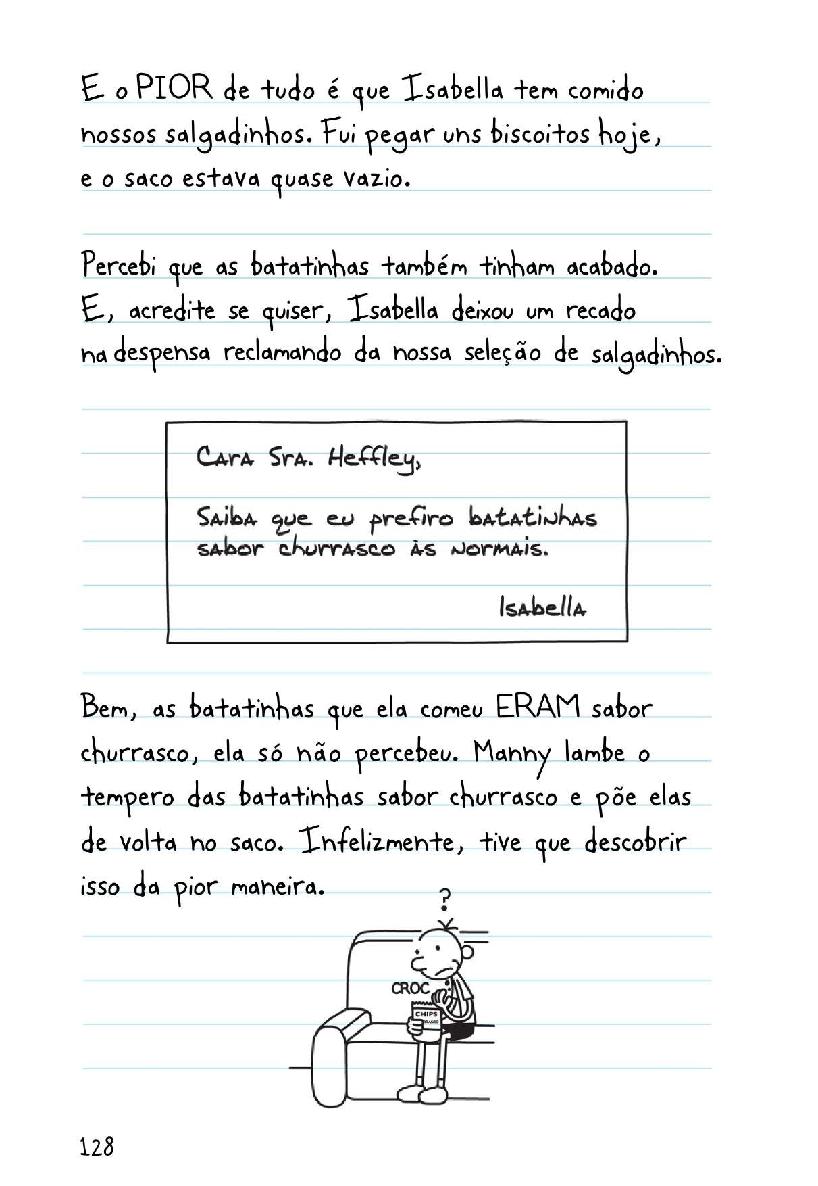 E o PIOR de tudo é que Isabella tem comido
nossos salgadinhos. Fui pegar uns biscoitos hoje,
e o saco estava quase vazio.
Percebi que as batatinhas também tinham acabado.
E, acredite se quiser, Isabella deixou um recado
na despensa reclamando da nossa seleção de salgadinhos.
Cara Sra. Heffley,
Saiba que eu prefiro batatinhas
sabor churrasco às normais.
Isabella
Bem, as batatinhas que ela comeu ERAM sabor
churrasco, ela só não percebeu. Manny lambe o
tempero das batatinhas sabor churrasco e põe elas
de volta no saco. Infelizmente, tive que descobrir
isso da pior maneira.
?
CROC
CHIPS
128